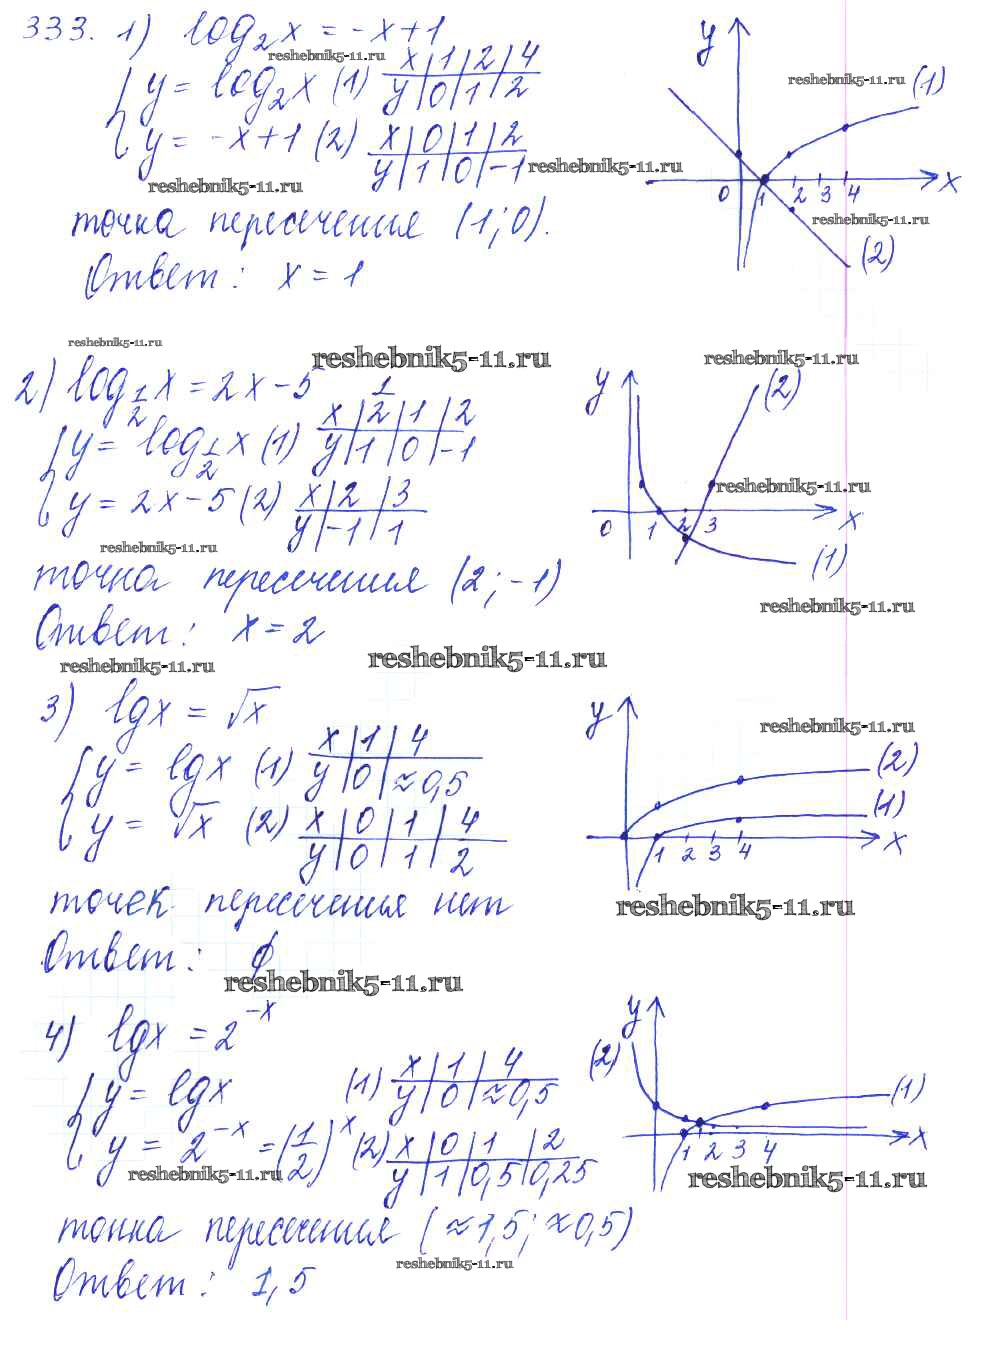 333. 1) log₂x = -x+1
reshebnik5-11.ru
{ y = log₂x (1) x | 1 | 2 | 4
y | 0 | 1 | 2
y = -x+1 (2) x | 0 | 1 | 2
y | 1 | 0 | -1
reshebnik5-11.ru
reshebnik5-11.ru
точка пересечения (1; 0).
Ответ: x = 1
y
reshebnik5-11.ru
(1)
0 1 2 3 4 x
reshebnik5-11.ru
(2)
reshebnik5-11.ru
reshebnik5-11.ru
reshebnik5-11.ru
2) log_{1/2} x = 2x-5
{ y = log_{1/2} x (1) x | 1/2 | 1 | 2
y | 1 | 0 | -1
y = 2x-5 (2) x | 2 | 3
y | -1 | 1
reshebnik5-11.ru
точка пересечения (2; -1)
Ответ: x = 2
y
(2)
reshebnik5-11.ru
0 1 2 3 x
(1)
reshebnik5-11.ru
reshebnik5-11.ru
reshebnik5-11.ru
3) lgx = √x
{ y = lgx (1) x | 1 | 4
y | 0 | ≈0,5
y = √x (2) x | 0 | 1 | 4
y | 0 | 1 | 2
точек пересечения нет
Ответ: ∅
reshebnik5-11.ru
y
reshebnik5-11.ru
(2)
(1)
1 2 3 4 x
reshebnik5-11.ru
4) lgx = 2^{-x}
{ y = lgx (1) x | 1 | 4
y | 0 | ≈0,5
y = 2^{-x} = (1/2)^x (2) x | 0 | 1 | 2
y | 1 | 0,5 | 0,25
reshebnik5-11.ru
точка пересечения (≈1,5; ≈0,5)
reshebnik5-11.ru
Ответ: 1,5
y
(2)
(1)
1 2 3 4 x
reshebnik5-11.ru